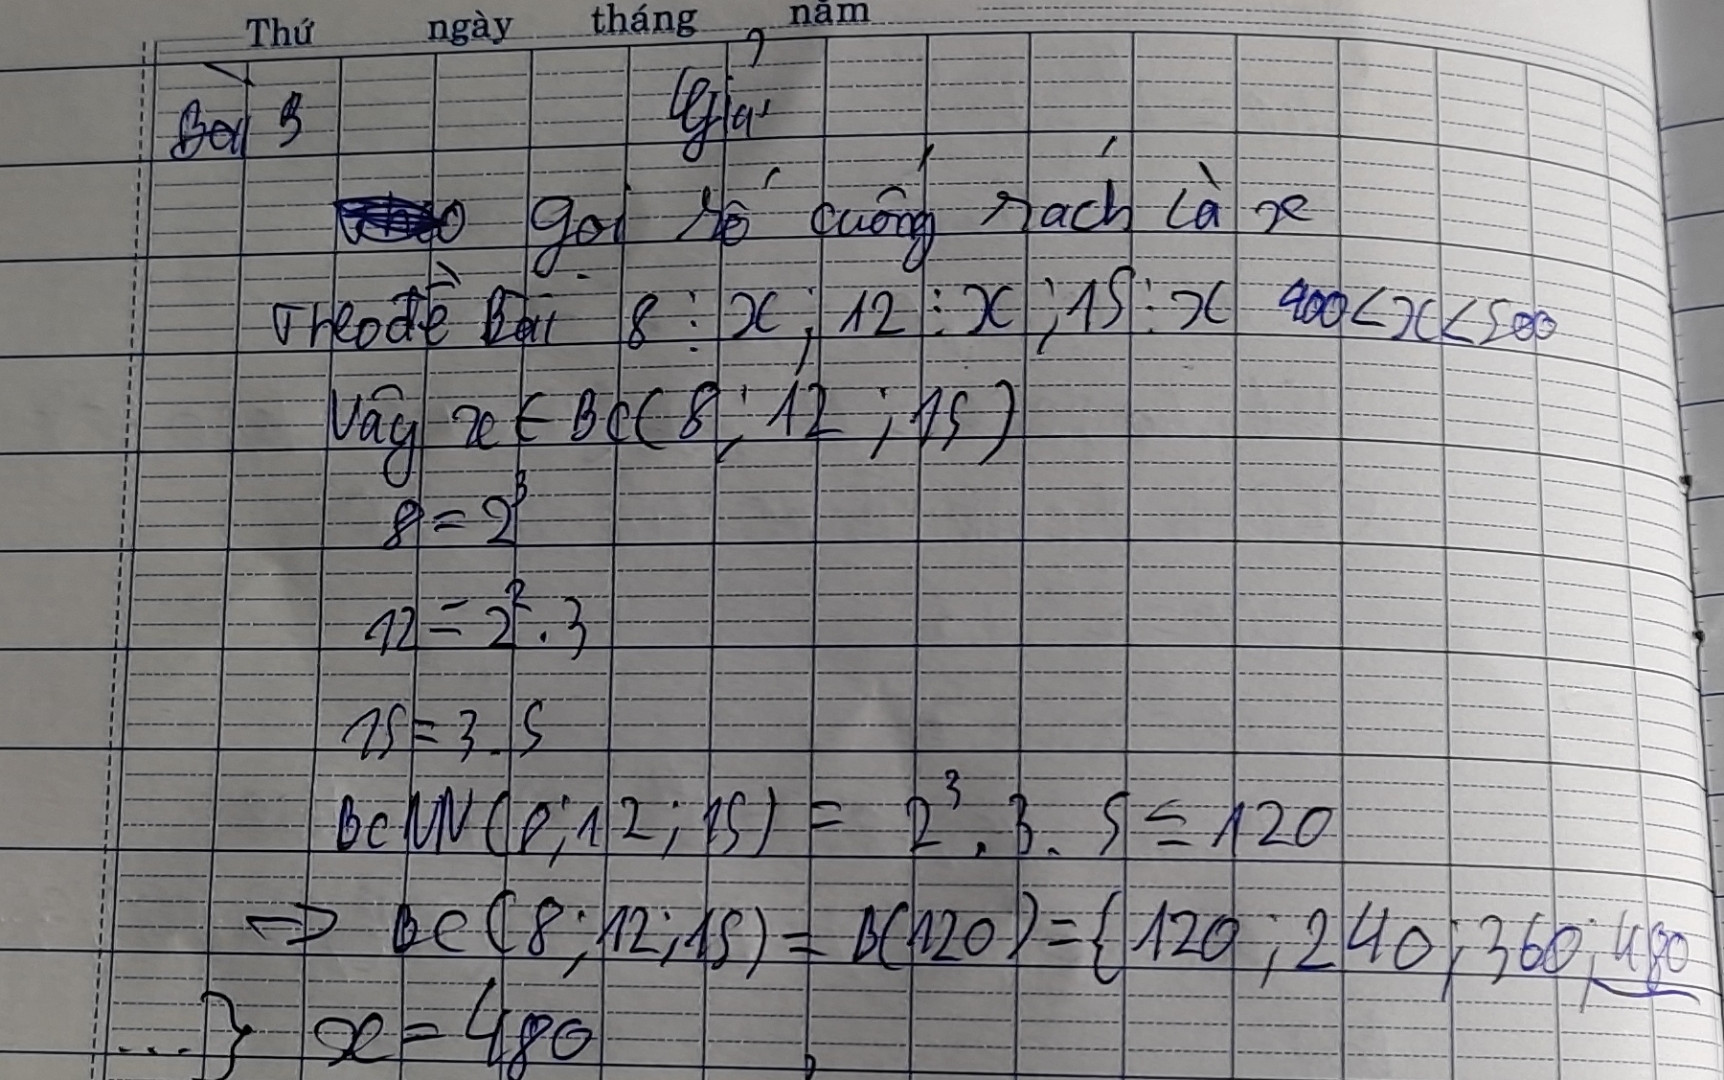 Thứ ngày tháng năm
Bài 3 Giải
Gọi số cuống sách là x
Theo đề Bài 8 ⋮ x ; 12 ⋮ x ; 15 ⋮ x 400 < x < 500
Vây x ∈ BC ( 8 ; 12 ; 15 )
8 = 2³
12 = 2² . 3
15 = 3 . 5
BCNN ( 8 ; 12 ; 15 ) = 2³ . 3 . 5 = 120
=> BC ( 8 ; 12 ; 15 ) = B(120) = { 120 ; 240 ; 360 ; 480
.... } x = 480